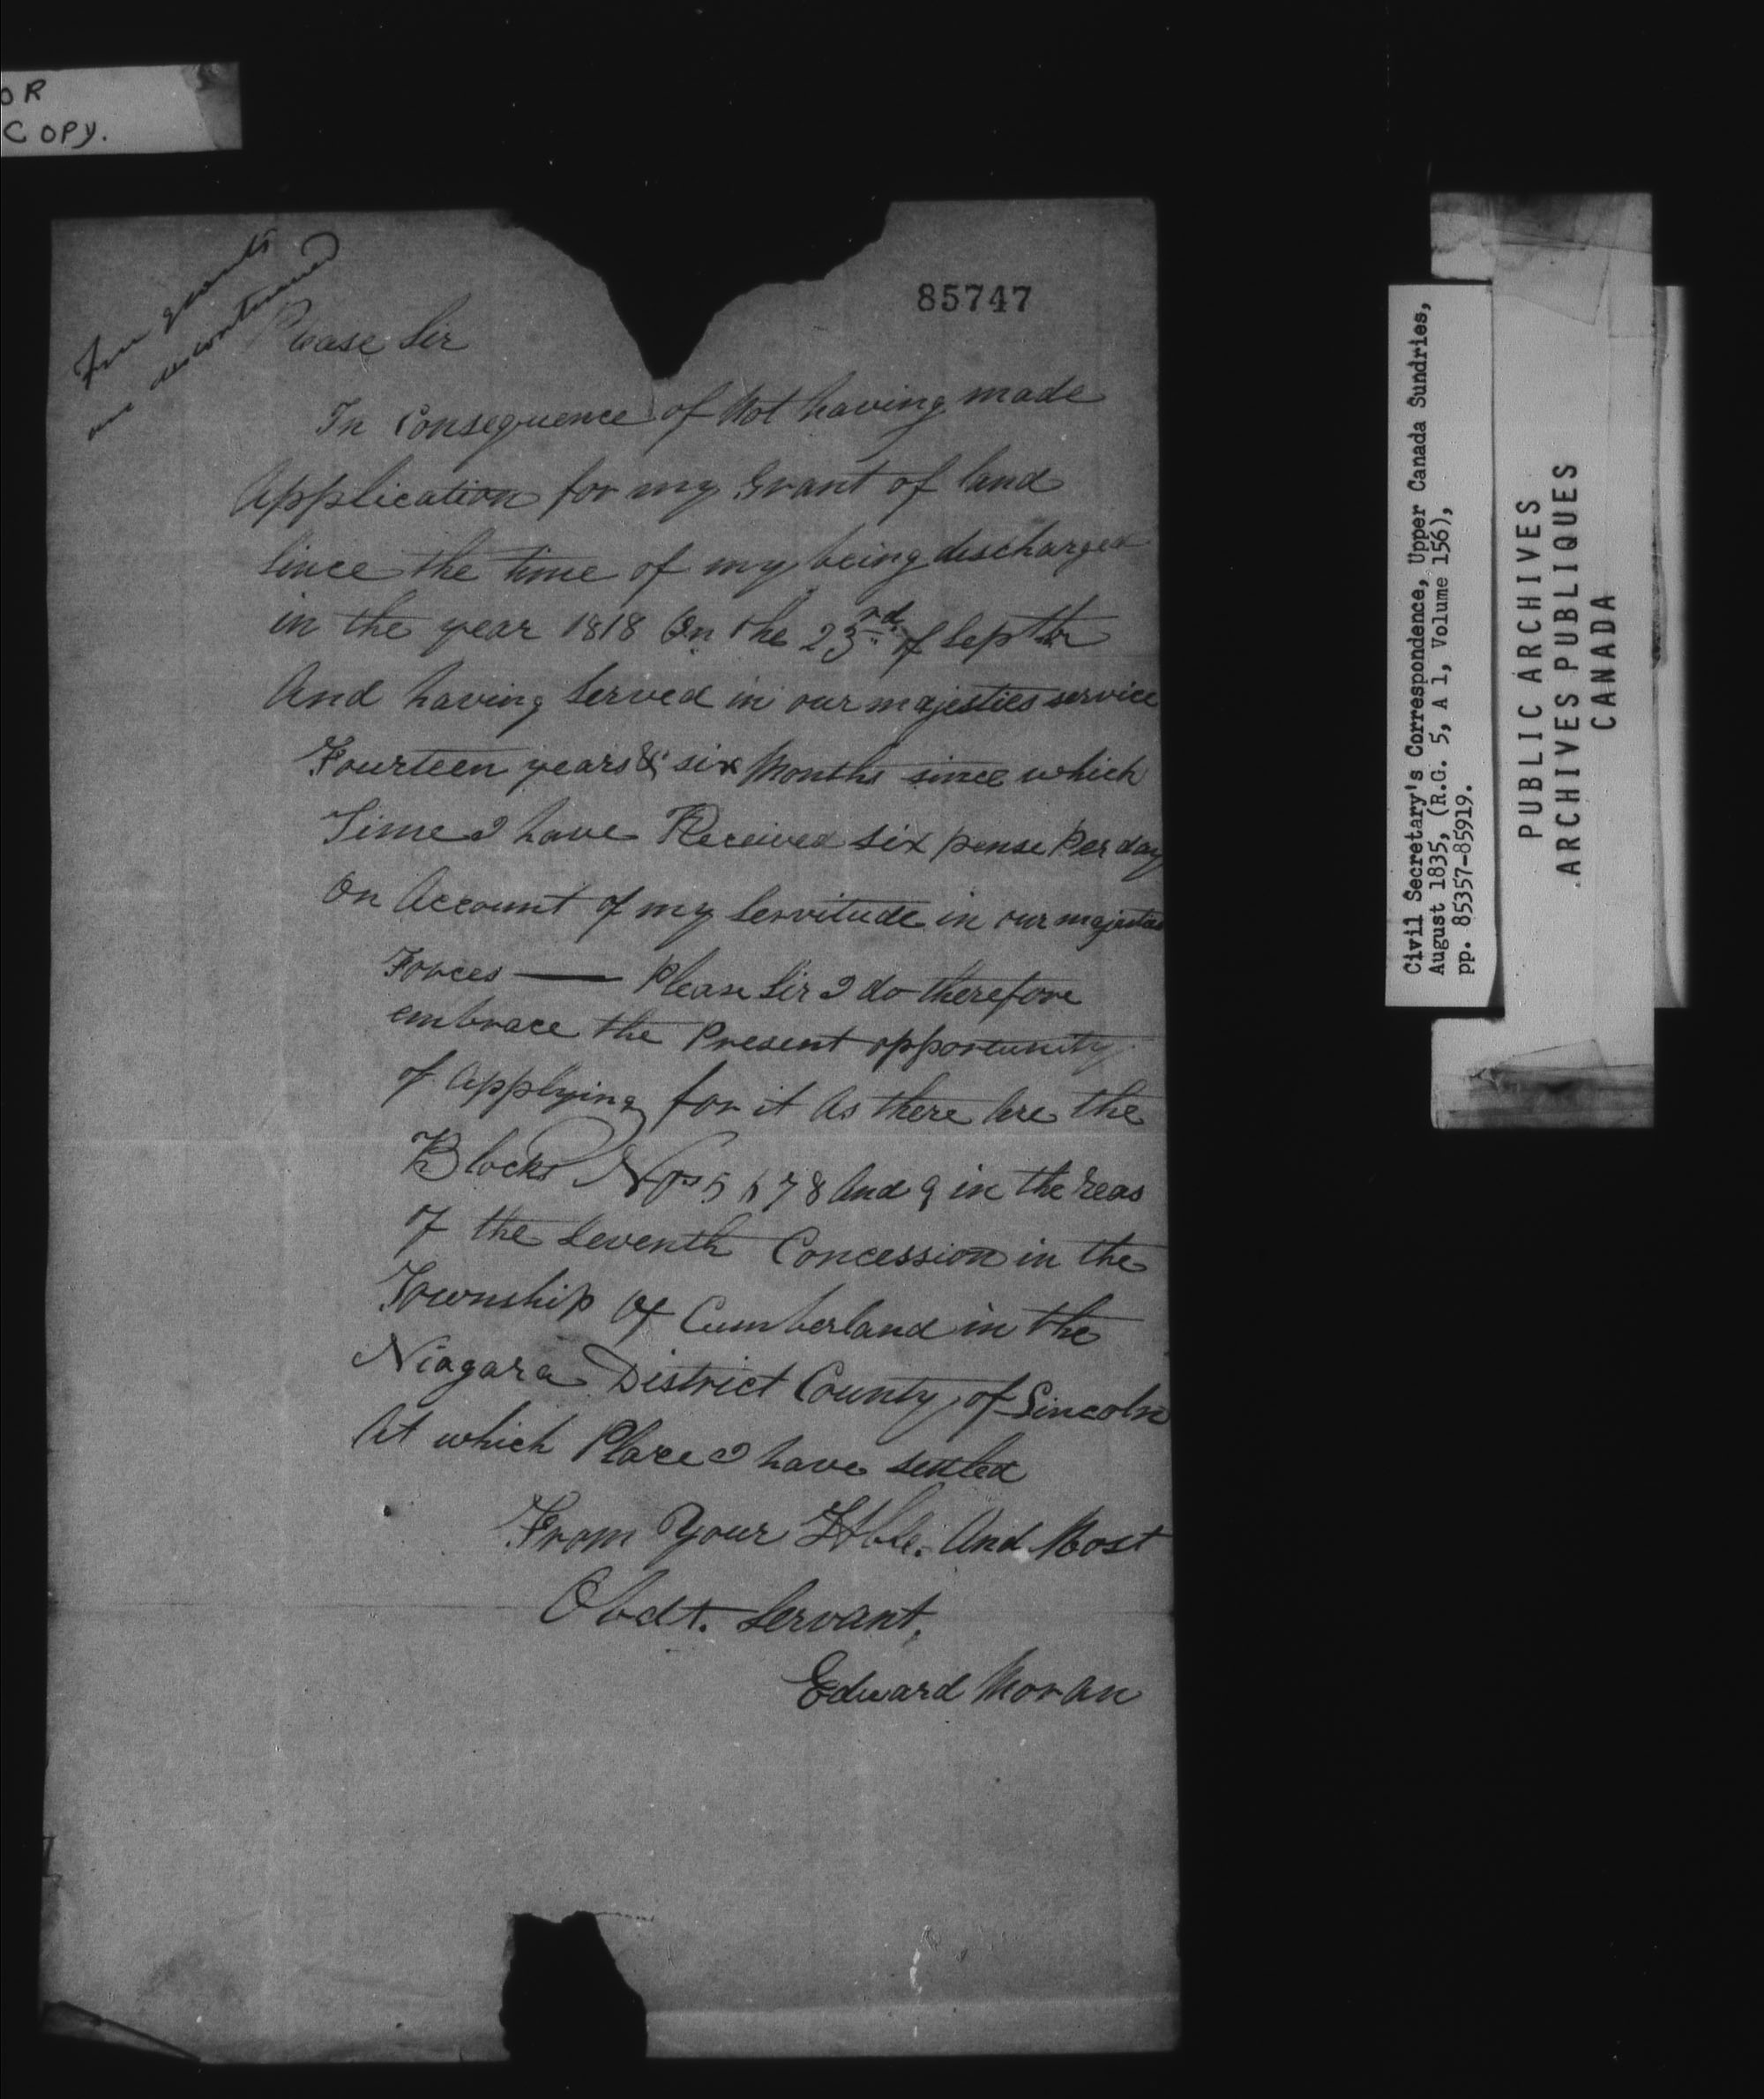 OR
COPY.
Free grants
are discontinued
85747
Please Sir
In Consequence of Not having made
Application for my Grant of land
Since the time of my being discharged
in the year 1818 On the 23rd. of Septbr
And having Served in our majesties service
Fourteen years & six Months since which
Time I have Received six pense Per day
On Account of my Servitude in our majesties
Forces — Please Sir I do therefore
embrace the Present opportunity
of Applying for it As there Are the
Blocks Nos 5 6 7 8 And 9 in the Rear
of the Seventh Concession in the
Township Of Cumberland in the
Niagara District County of Lincoln
At which Place I have settled
From Your Hble. And Most
Obdt. Servant.
Edward Moran
Civil Secretary's Correspondence, Upper Canada Sundries,
August 1835, (R.G. 5, A 1, Volume 156),
pp. 85357-85919.
PUBLIC ARCHIVES
ARCHIVES PUBLIQUES
CANADA